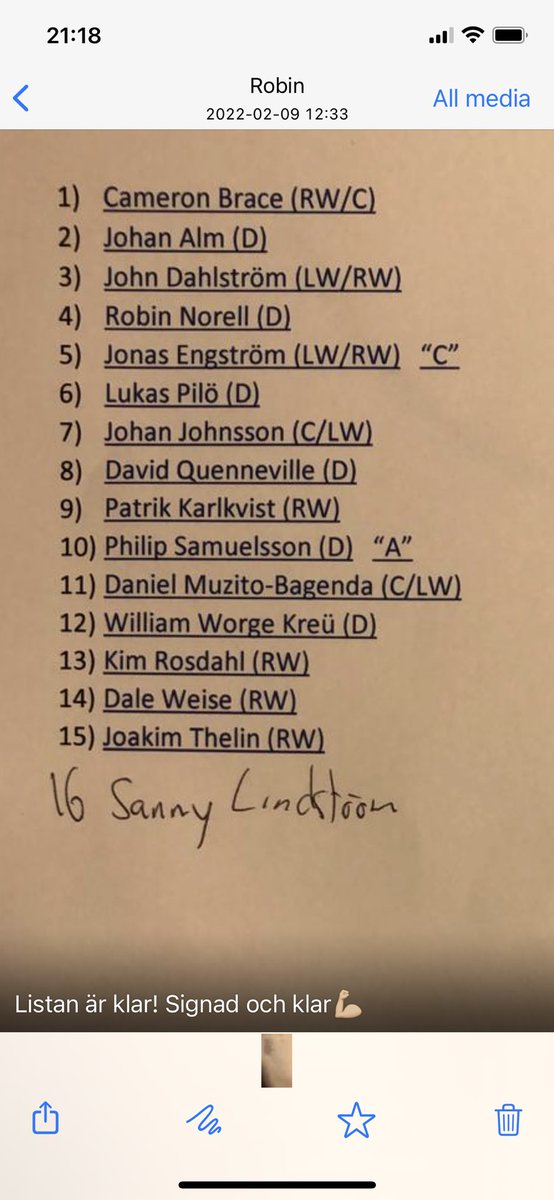 21:18
Robin
2022-02-09 12:33
All media
1) Cameron Brace (RW/C)
2) Johan Alm (D)
3) John Dahlström (LW/RW)
4) Robin Norell (D)
5) Jonas Engström (LW/RW) “C”
6) Lukas Pilö (D)
7) Johan Johnsson (C/LW)
8) David Quenneville (D)
9) Patrik Karlkvist (RW)
10) Philip Samuelsson (D) “A”
11) Daniel Muzito-Bagenda (C/LW)
12) William Worge Kreü (D)
13) Kim Rosdahl (RW)
14) Dale Weise (RW)
15) Joakim Thelin (RW)
16 Sanny Lindström
Listan är klar! Signad och klar💪🏼